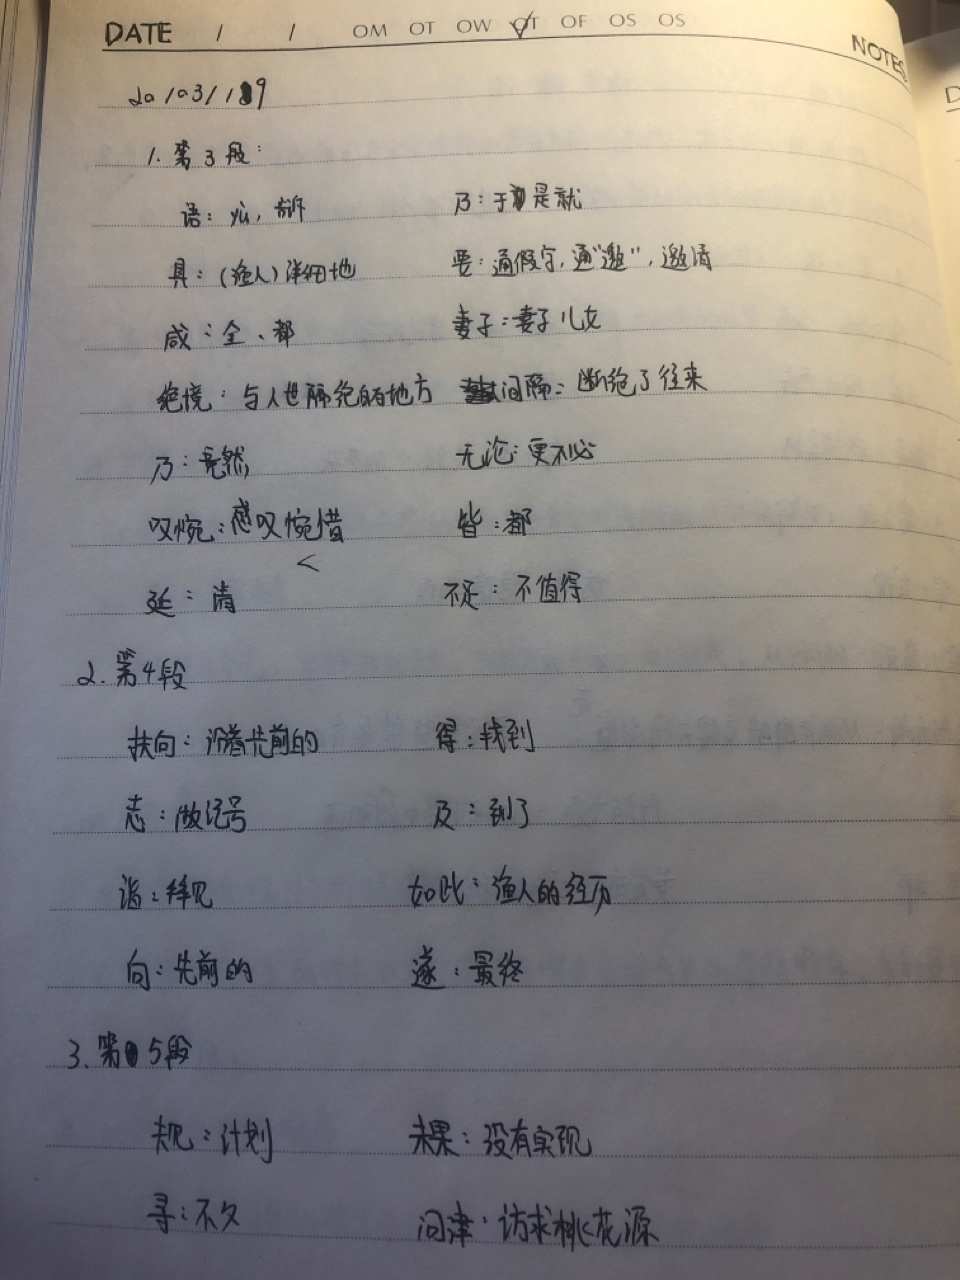 DATE / / OM OT OW OT OF OS OS
NOTES
1. 第3段:
语: 说, 告诉 乃: 于是就
具: (渔人) 详细地 要: 通假字, 通"邀", 邀请
咸: 全、都 妻子: 妻子儿女
绝境: 与人世隔绝的地方 间隔: 断绝了往来
乃: 竟然, 无论: 更不必
叹惋: 感叹惋惜 皆: 都
延: 请 不足: 不值得
2. 第4段
扶向: 沿着先前的 得: 找到
志: 做记号 及: 到了
诣: 拜见 如此: 渔人的经历
向: 先前的 遂: 最终
3. 第5段
规: 计划 未果: 没有实现
寻: 不久 问津: 访求桃花源